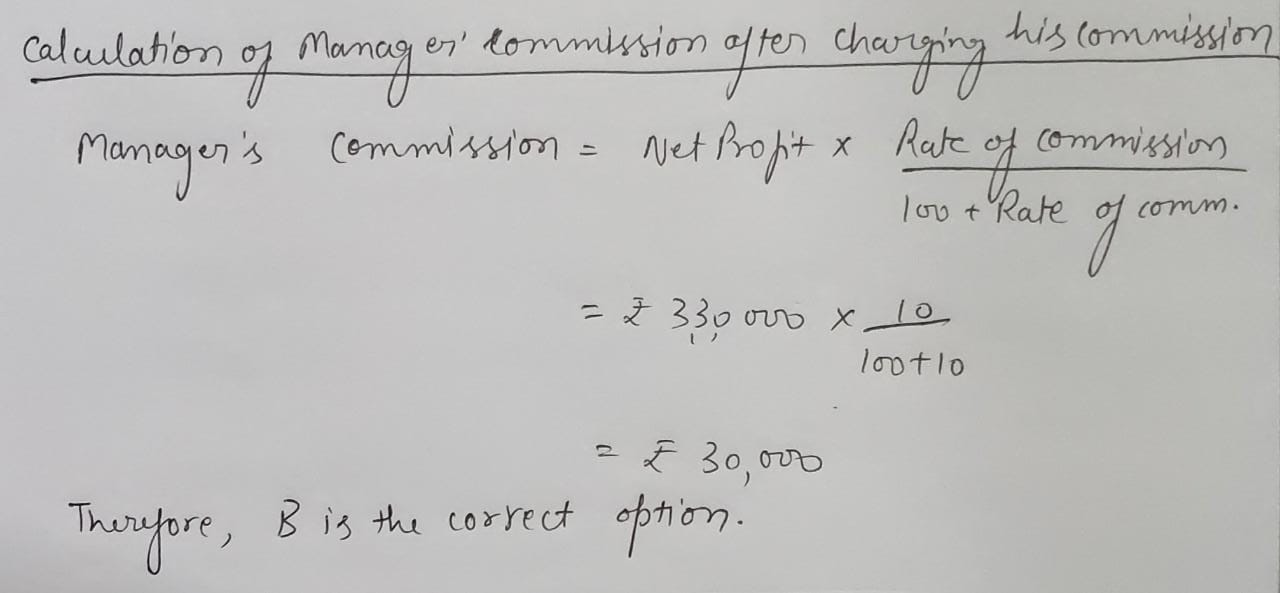 Calculation of Manager' Commission after charging his Commission
Manager's Commission = Net Profit x Rate of commission
100 + Rate of comm.
= ₹ 330,000 x 10
100+10
= ₹ 30,000
Therefore, B is the correct option.